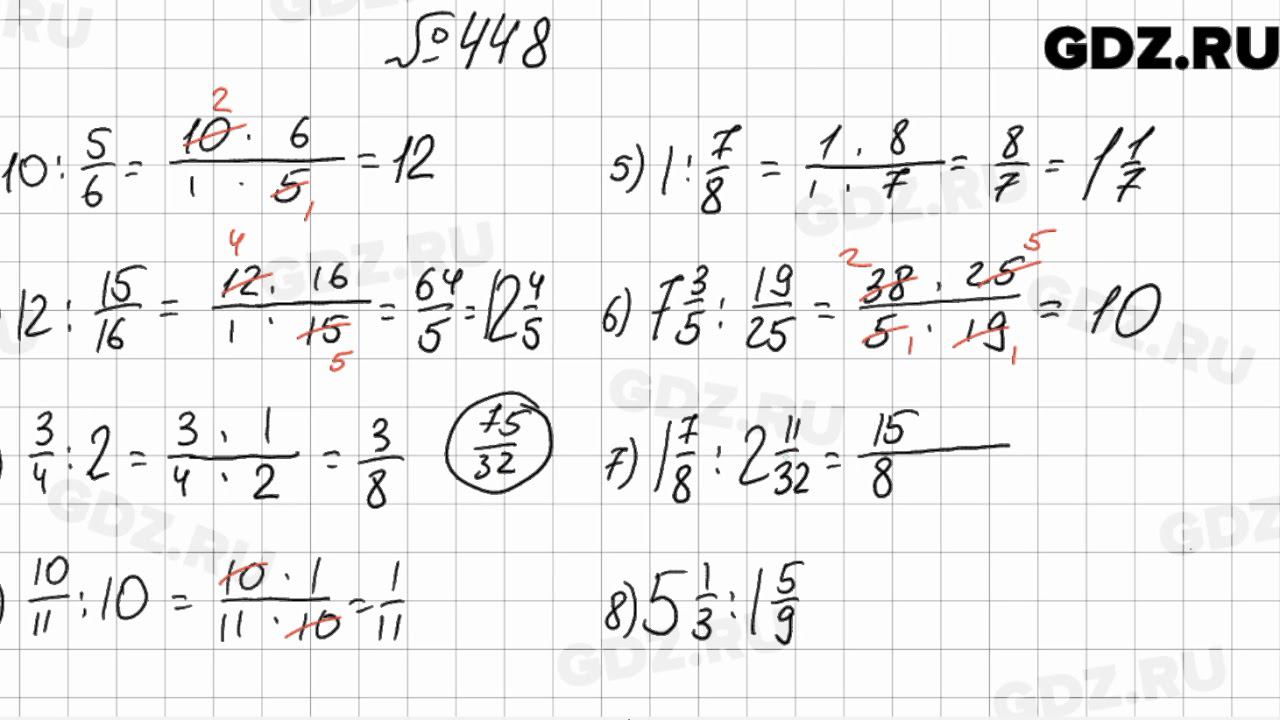 №448
GDZ.RU
10 : 5/6 = 10 · 6 / 1 · 5 = 12
2
1
5) 1 : 7/8 = 1 · 8 / 1 · 7 = 8/7 = 1 1/7
12 : 15/16 = 12 · 16 / 1 · 15 = 64/5 = 12 4/5
4
5
6) 7 3/5 : 19/25 = 38 · 25 / 5 · 19 = 10
2 5
1 1
) 3/4 : 2 = 3 · 1 / 4 · 2 = 3/8
75/32
7) 1 7/8 : 2 11/32 = 15 / 8
) 10/11 : 10 = 10 · 1 / 11 · 10 = 1/11
8) 5 1/3 : 1 5/9
GDZ.RU
GDZ.RU
GDZ.RU
GDZ.RU
GDZ.RU
GDZ.RU
GDZ.RU